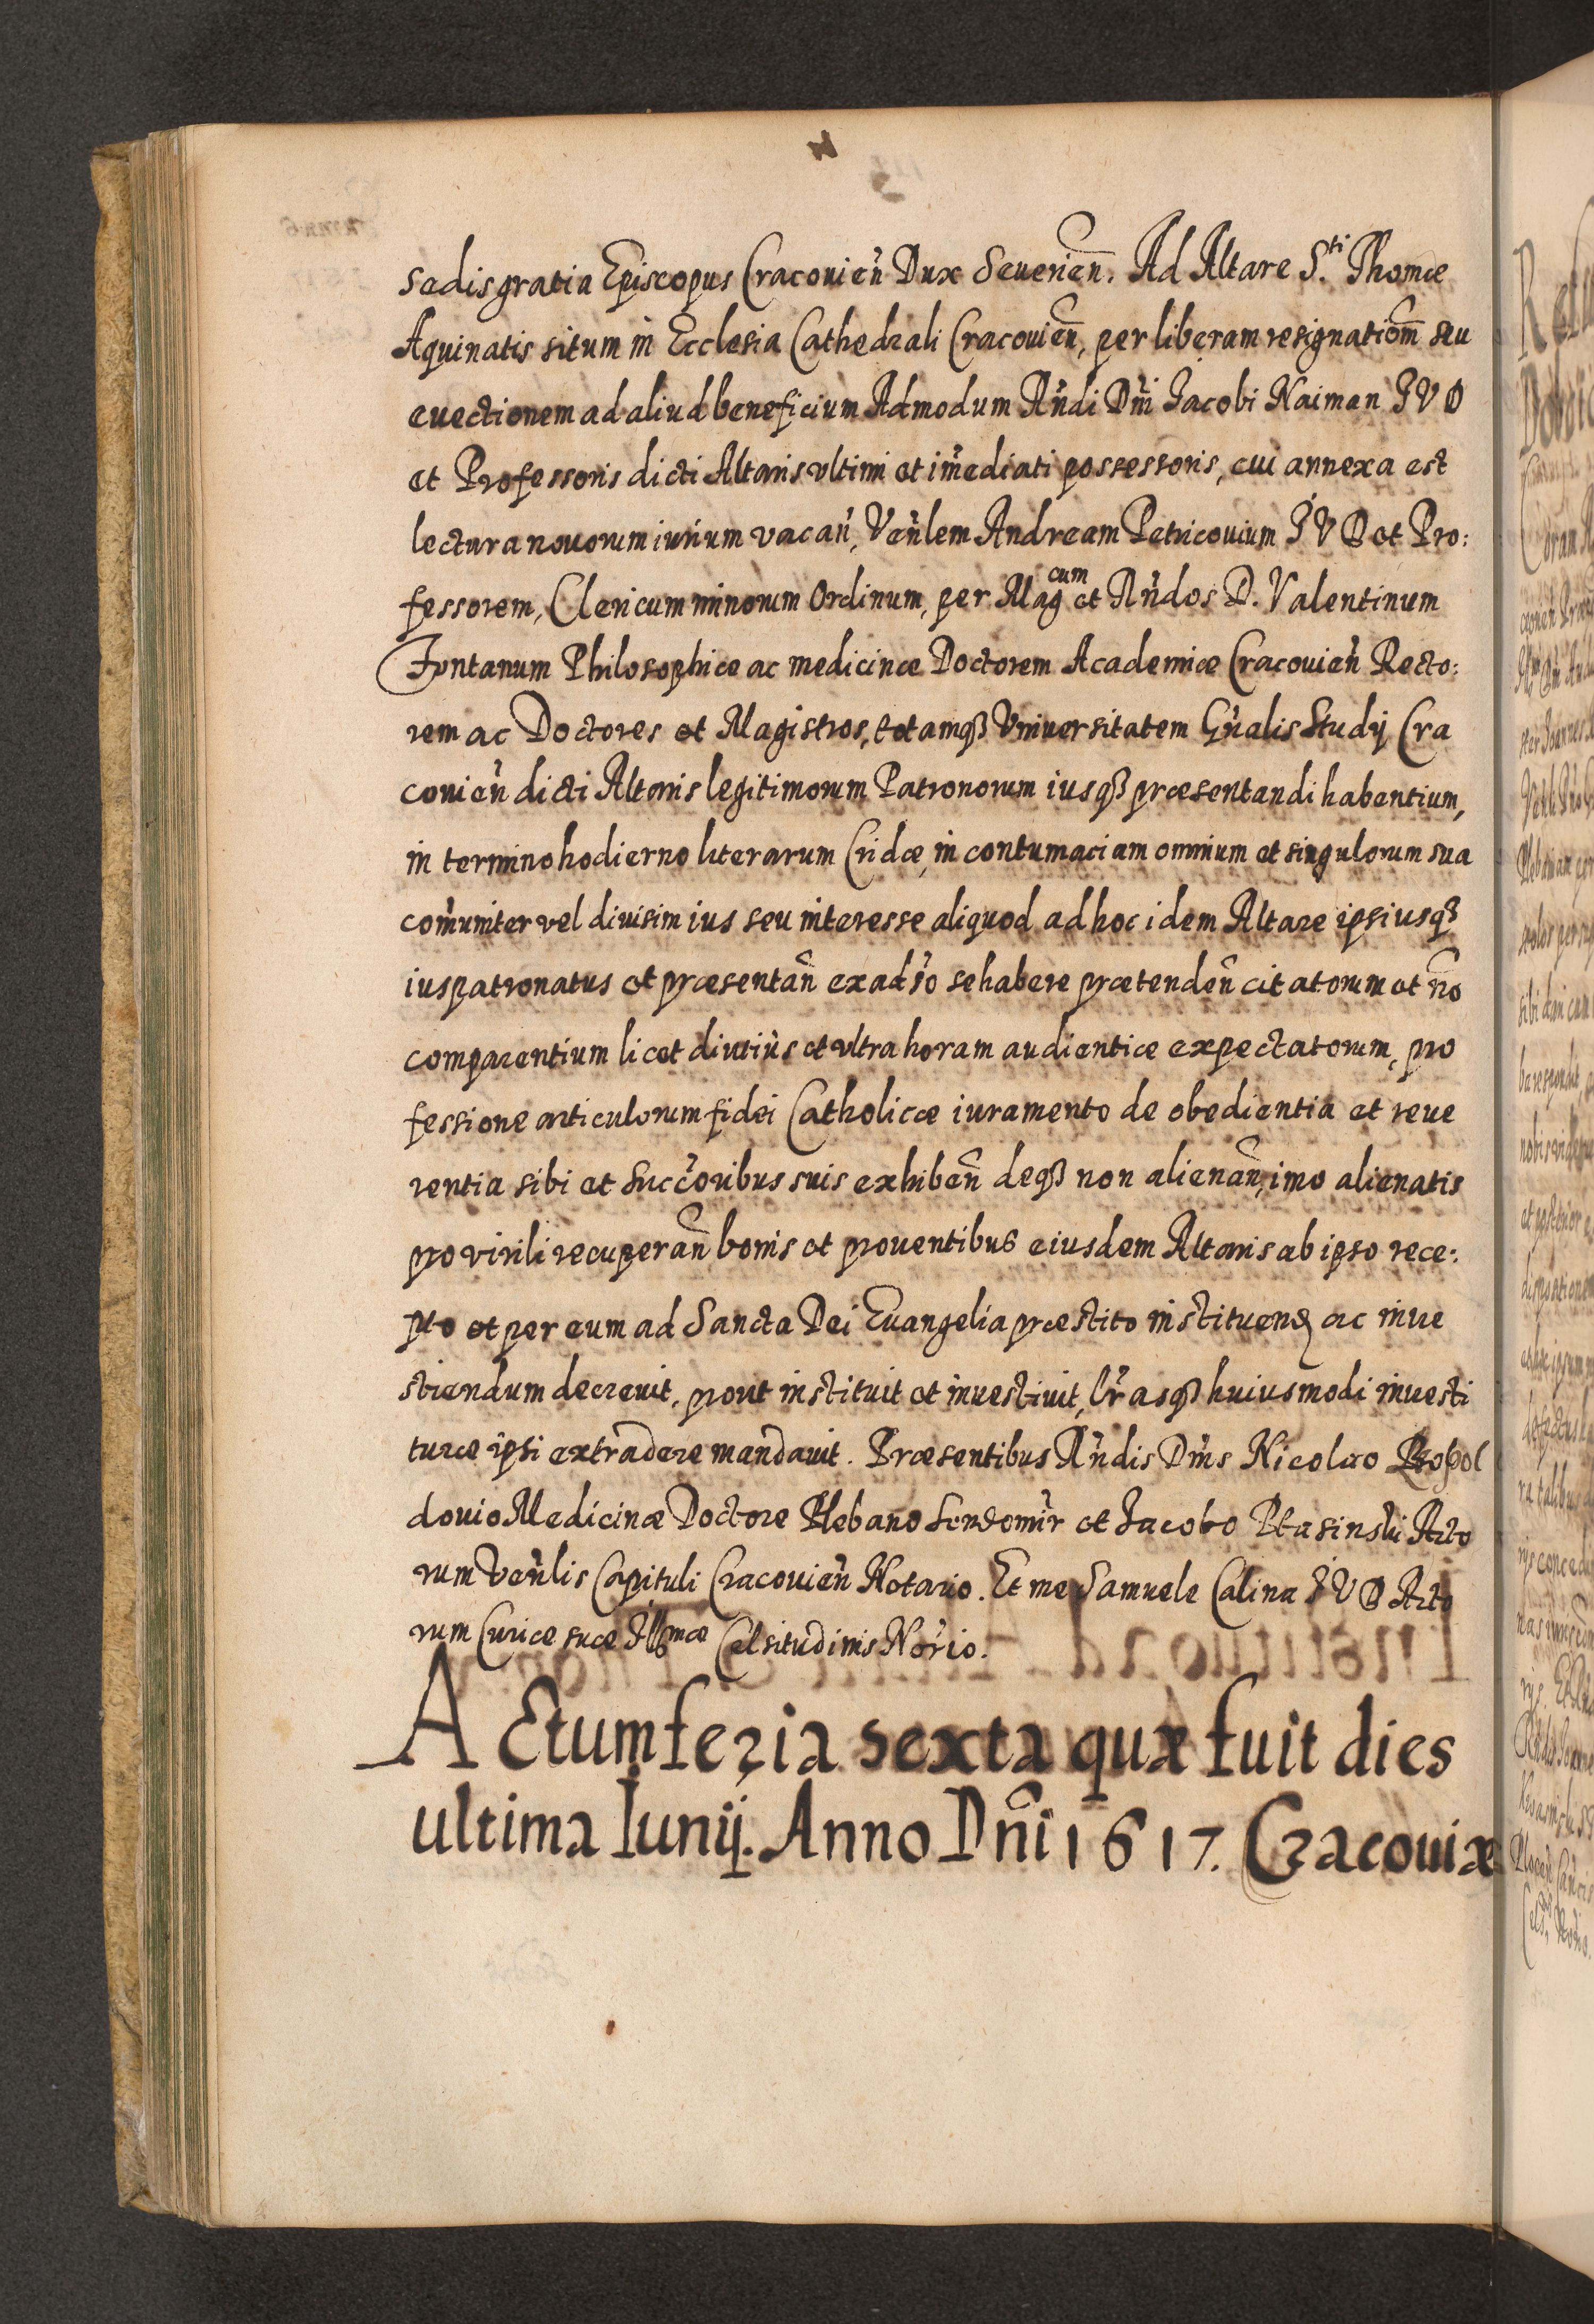 sedis gratia Episcopus Cracouień Dux Seuerień. Ad Altare S.ti Thomæ
Aquinatis situm in Ecclesia Cathedrali Cracouień, per liberam resignatiom̃ seu
euectionem ad aliud beneficium Admodum Rńdi Dńi Jacobi Naiman J V D
et Professoris dicti Altaris vltimi et im̃ediati possessoris, cui annexa est
lectura nouorum iurium vacań, Veńlem Andream Petricouium J V D et Pro:
fessorem, Clericum minorum Ordinum, per Mag cum et Rńdos D. Valentinum
Fontanum Philosophiæ ac medicinæ Doctorem Academiæ Cracouień Recto:
rem ac Doctores et Magistros, totamqß Vniuersitatem Gńalis Studij Cra
couień dicti Altaris legitimorum Patronorum iusqß præsentandi habentium,
in termino hodierno literarum Cridæ, in contumaciam omnium et singulorum sua
com̃uniter vel diuisim ius seu interesse aliquod ad hoc idem Altare ipsiusqß
iuspatronatus et præsentań ex aduo se habere prætendeń citatorum et nõ
comparentium licet diutiùs et vltra horam audientiæ expectatorum, pro
fessione articulorum fidei Catholicæ iuramento de obedientia et reue
rentia sibi et Succ̃oribus suis exhibeń deqß non alienań, imo alienatis
pro virili recuperań bonis et prouentibus eiusdem Altaris ab ipso rece:
pto et per eum ad Sancta Dei Euangelia præstito instituend ac inue
stiendum decreuit, prout instituit et inuestiuit, Lr̃asqß huiusmodi inuesti
turæ ipsi extradere mandauit. Præsentibus Rńdis Dńis Nicolao Leopol
douio Medicinæ Doctore Plebano Sendomir̃ et Jacobo Blasinski Acto
rum Veńlis Capituli Cracouień Notario. Et me Samuele Calina J V D Acto
rum Curiæ suæ Illmæ Celsitudinis Nor̃io.
ACtum feria sexta quæ fuit dies
ultima Iunij. Anno Dńi 1617. Cracouiæ